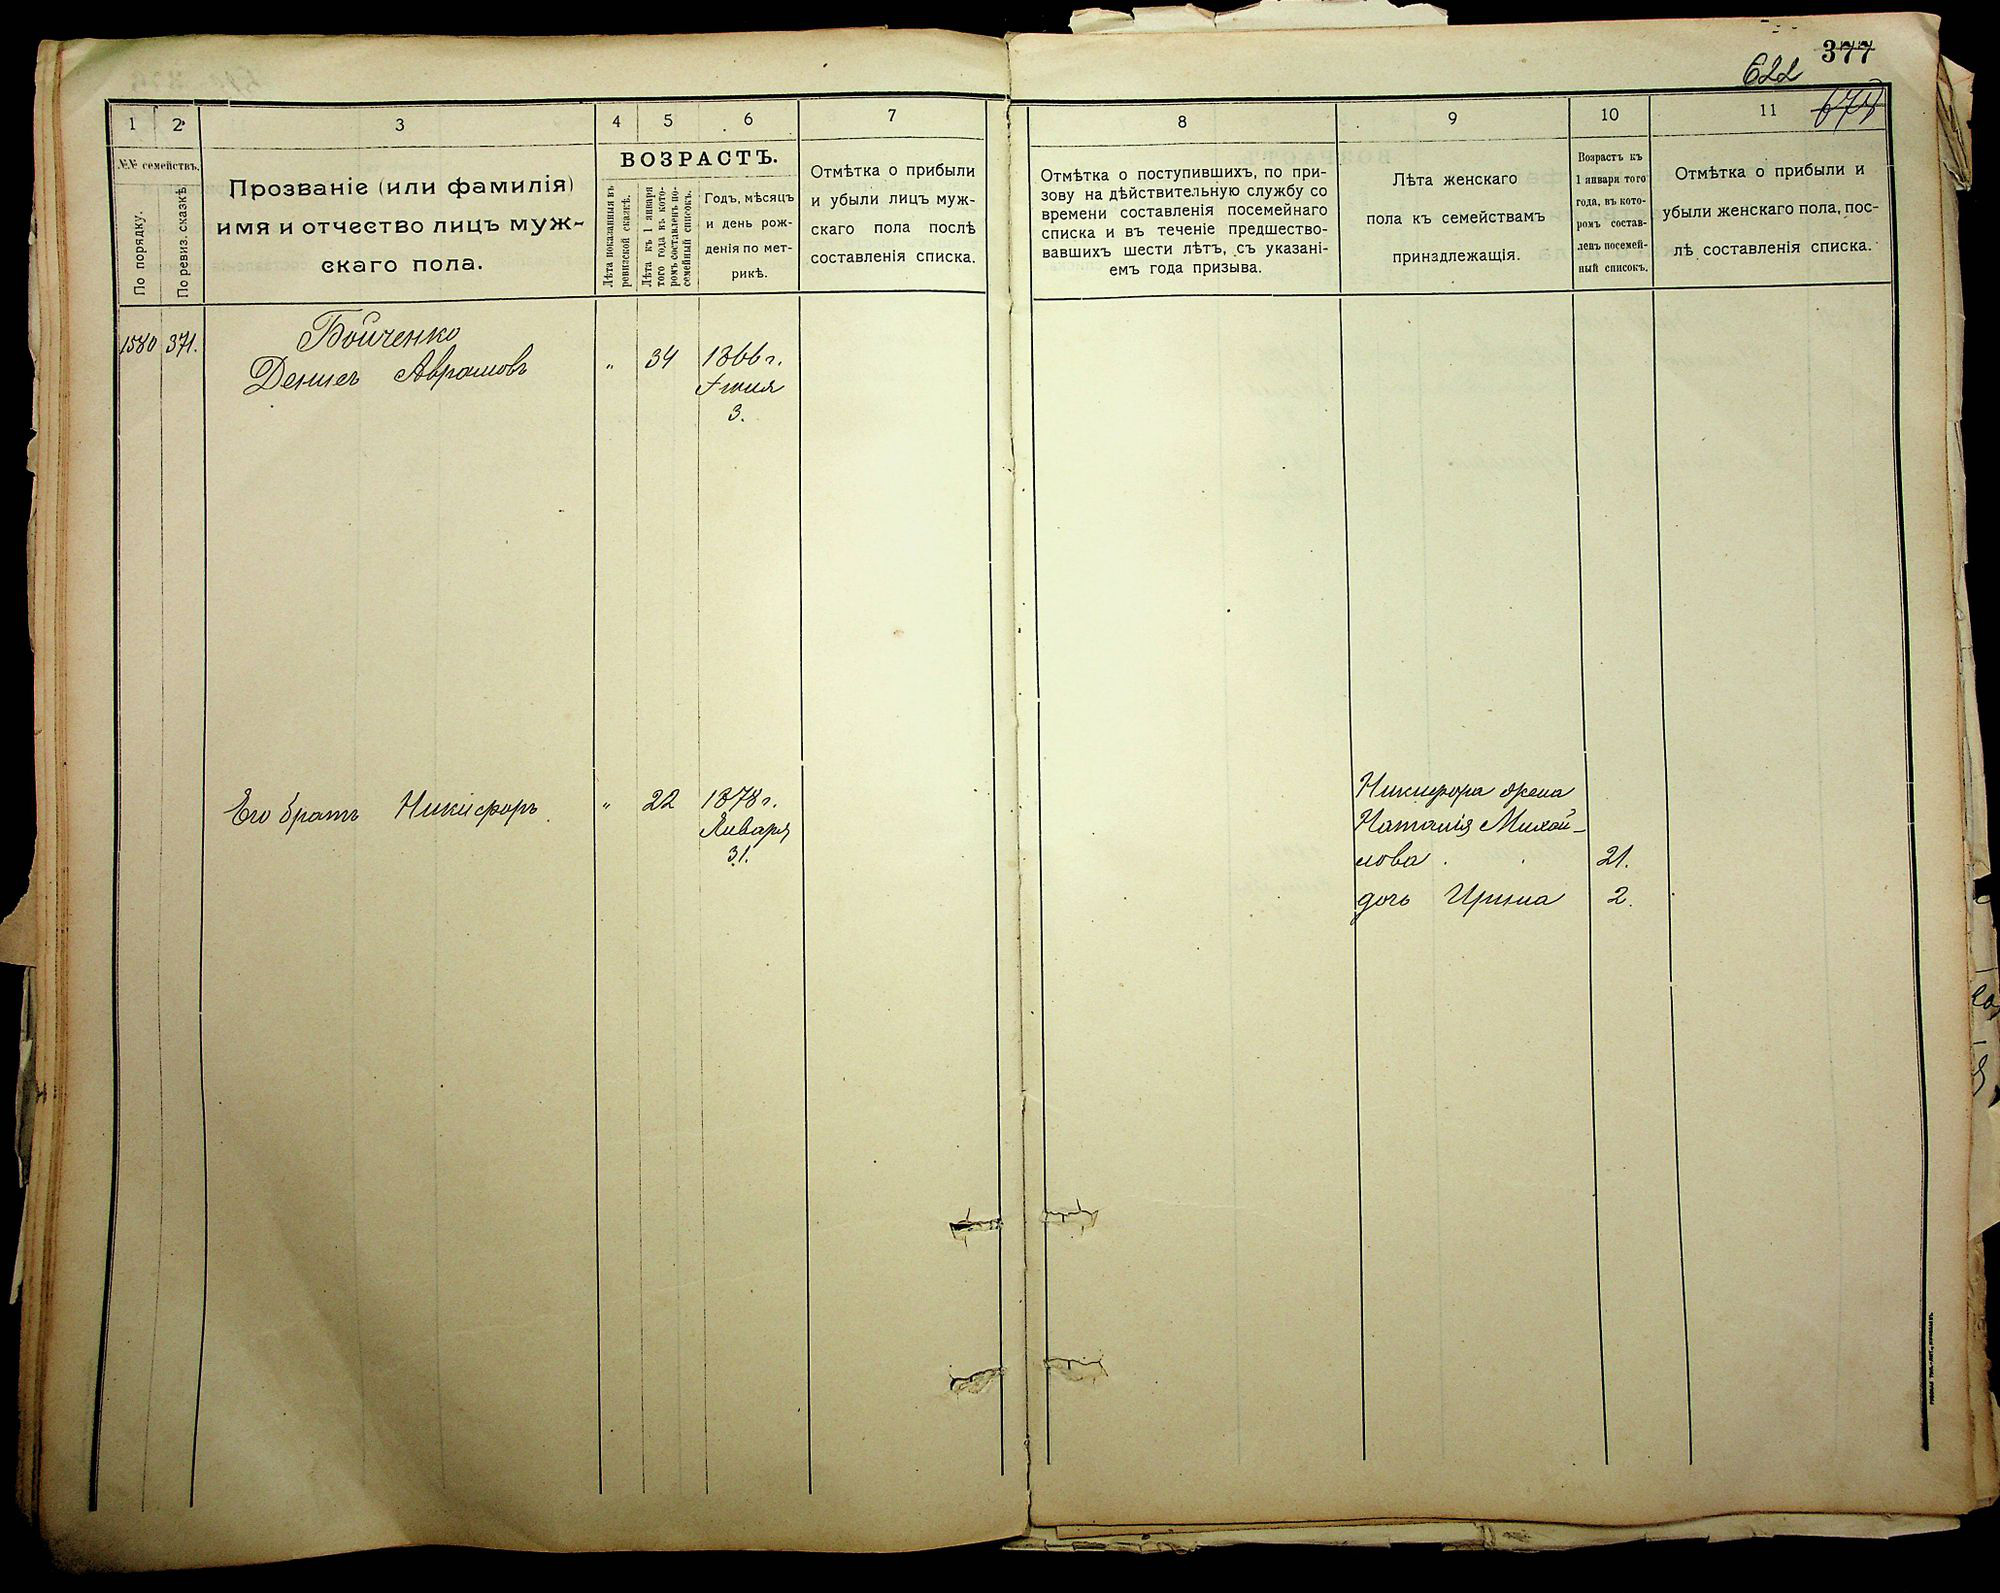 377
622
1
2
3
4
5
6
7
8
9
10
11
№№ семействъ.
По порядку.
По ревиз. сказкѣ
Прозваніе (или фамилія)
имя и отчество лицъ муж-
скаго пола.
ВОЗРАСТЪ.
Лѣта показанныя въ
ревизской сказкѣ.
Лѣта къ 1 января
того года въ кото-
ромъ составленъ по-
семейный списокъ.
Годъ, мѣсяцъ
и день рож-
денія по мет-
рикѣ.
Отмѣтка о прибыли
и убыли лицъ муж-
скаго пола послѣ
составленія списка.
Отмѣтка о поступившихъ, по при-
зову на дѣйствительную службу со
времени составленія посемейнаго
списка и въ теченіе предшество-
вавшихъ шести лѣтъ, съ указані-
емъ года призыва.
Лѣта женскаго
пола къ семействамъ
принадлежащія.
Возрастъ къ
1 января того
года, въ кото-
ромъ состав-
ленъ посемей-
ный списокъ.
Отмѣтка о прибыли и
убыли женскаго пола, пос-
лѣ составленія списка.
1580 371. Бойченко
Денисъ Аврамовъ " 34 1866 г.
Іюня
3.
Его братъ Никифоръ. " 22 1878 г.
Января
31.
Никифора жена
Наталія Михай-
лова . . 21.
дочь Ирина 2.